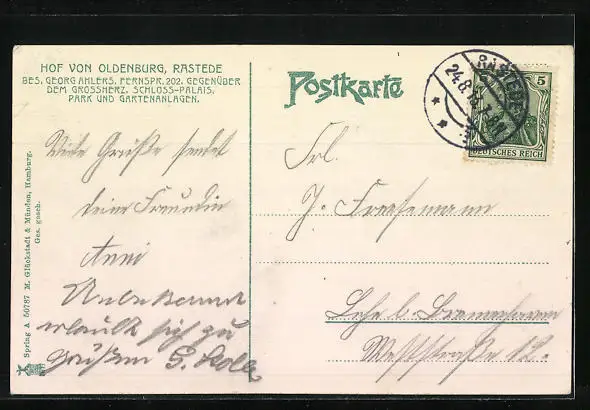 HOF VON OLDENBURG, RASTEDE
BES. GEORG AHLERS, FERNSPR. 202. GEGENÜBER
DEM GROSSHERZ. SCHLOSS-PALAIS,
PARK UND GARTENANLAGEN.
Postkarte
RASTEDE
24.8.
5
DEUTSCHES REICH
Viele Grüße sendet
deine Freundin
Anni
Unbekannt
erlaubt sich zu
grüßen G.
Frl.
J.
Lehe b. Bremerhaven
Weststraße 12.
Spring A 50787 M. Glückstadt & Münden, Hamburg.
Ges. gesch.